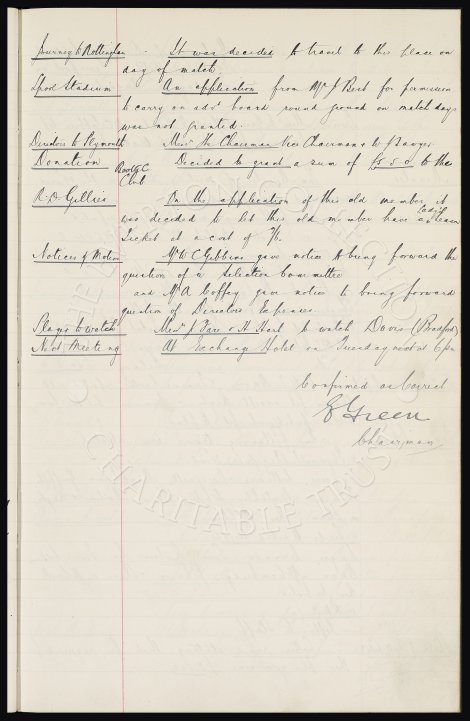 Journey to Nottingham . It was decided to travel to this place on
day of match
Lpool Stadium An application from Mr J Best for permission
to carry an advt board round ground on match days
was not granted.
Directors to Plymouth Messrs The Chairman Vice Chairman & W J Sawyer
Donation Decided to grant a sum of £5 5 0 to the
Bootle C
Club
R. D. Gillies On the application of this old member it
was decided to let this old member have a Ladies Season
Ticket at a cost of 7/6.
Notices of Motion Mr W C Gibbins gave notice to bring forward the
question of a Selection Committee
and Mr A Coffey gave notice to bring forward
question of Directors Expenses.
Player to watch Messrs J Fare & H Hart to watch Davis (Bradford)
Next Meeting At Exchange Hotel on Tuesday next at 6 pm
Confirmed as Correct
E Green
Chairman
CHARITABLE TRUST